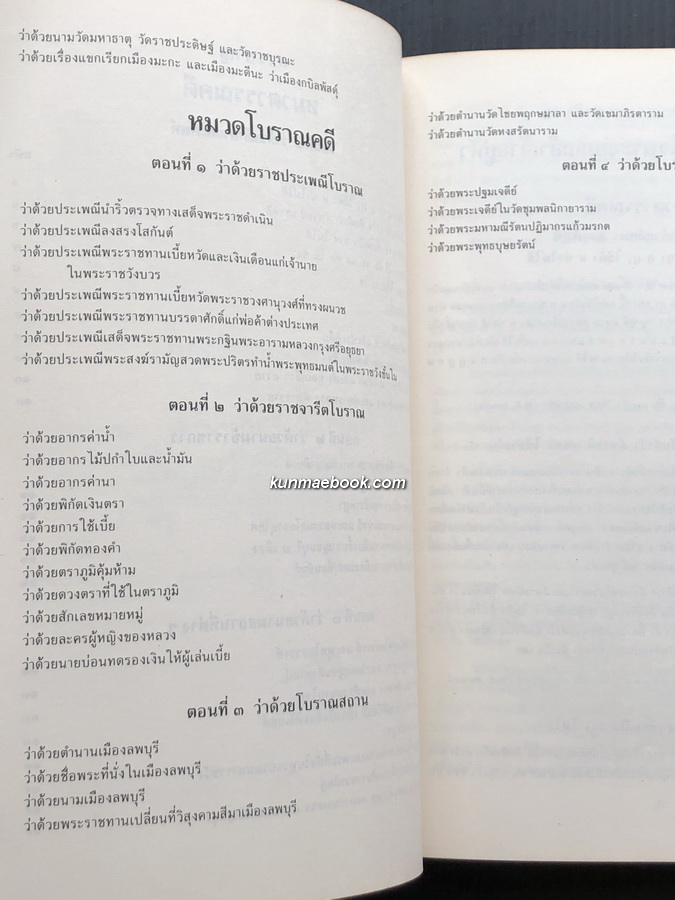 ว่าด้วยนามวัดมหาธาตุ วัดราชประดิษฐ์ และวัดราชบุรณะ
ว่าด้วยเรื่องแขกเรียกเมืองมะกะ และเมืองมะดีนะ ว่าเมืองกบิลพัสดุ์
หมวดโบราณคดี
ตอนที่ ๑ ว่าด้วยราชประเพณีโบราณ
ว่าด้วยประเพณีนำริ้วตรวจทางเสด็จพระราชดำเนิน
ว่าด้วยประเพณีลงสรงโสกันต์
ว่าด้วยประเพณีพระราชทานเบี้ยหวัดและเงินเดือนแก่เจ้านาย
ในพระราชวังบวร
ว่าด้วยประเพณีพระราชทานเบี้ยหวัดพระราชวงศานุวงศ์ที่ทรงผนวช
ว่าด้วยประเพณีพระราชทานบรรดาศักดิ์แก่พ่อค้าต่างประเทศ
ว่าด้วยประเพณีเสด็จพระราชทานพระกฐินพระอารามหลวงกรุงศรีอยุธยา
ว่าด้วยประเพณีพระสงฆ์รามัญสวดพระปริตรทำน้ำพระพุทธมนต์ในพระราชวังชั้นใน
ตอนที่ ๒ ว่าด้วยราชจารีตโบราณ
ว่าด้วยอากรค่าน้ำ
ว่าด้วยอากรไม้ปกำใบและน้ำมัน
ว่าด้วยอากรค่านา
ว่าด้วยพิกัดเงินตรา
ว่าด้วยการใช้เบี้ย
ว่าด้วยพิกัดทองคำ
ว่าด้วยตราภูมิคุ้มห้าม
ว่าด้วยดวงตราที่ใช้ในตราภูมิ
ว่าด้วยสักเลขหมายหมู่
ว่าด้วยละครผู้หญิงของหลวง
ว่าด้วยนายบ่อนทดรองเงินให้ผู้เล่นเบี้ย
ตอนที่ ๓ ว่าด้วยโบราณสถาน
ว่าด้วยตำนานเมืองลพบุรี
ว่าด้วยชื่อพระที่นั่งในเมืองลพบุรี
ว่าด้วยนามเมืองลพบุรี
ว่าด้วยพระราชทานเปลี่ยนที่วิสุงคามสีมาเมืองลพบุรี
kunmaebook.com
ว่าด้วยตำนานวัดไชยพฤกษมาลา และวัดเขมาภิรตาราม
ว่าด้วยตำนานวัดหงสรัตนาราม
ตอนที่ ๔ ว่าด้วยโบร
ว่าด้วยพระปฐมเจดีย์
ว่าด้วยพระเจดีย์ในวัดชุมพลนิกายาราม
ว่าด้วยพระมหามณีรัตนปฏิมากรแก้วมรกต
ว่าด้วยพระพุทธบุษยรัตน์